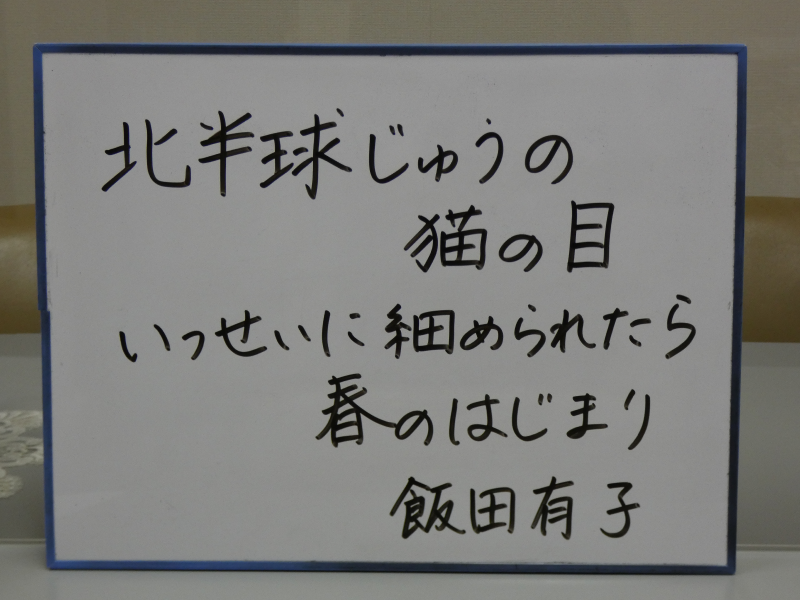 北半球じゅうの
猫の目
いっせいに細められたら
春のはじまり
飯田有子